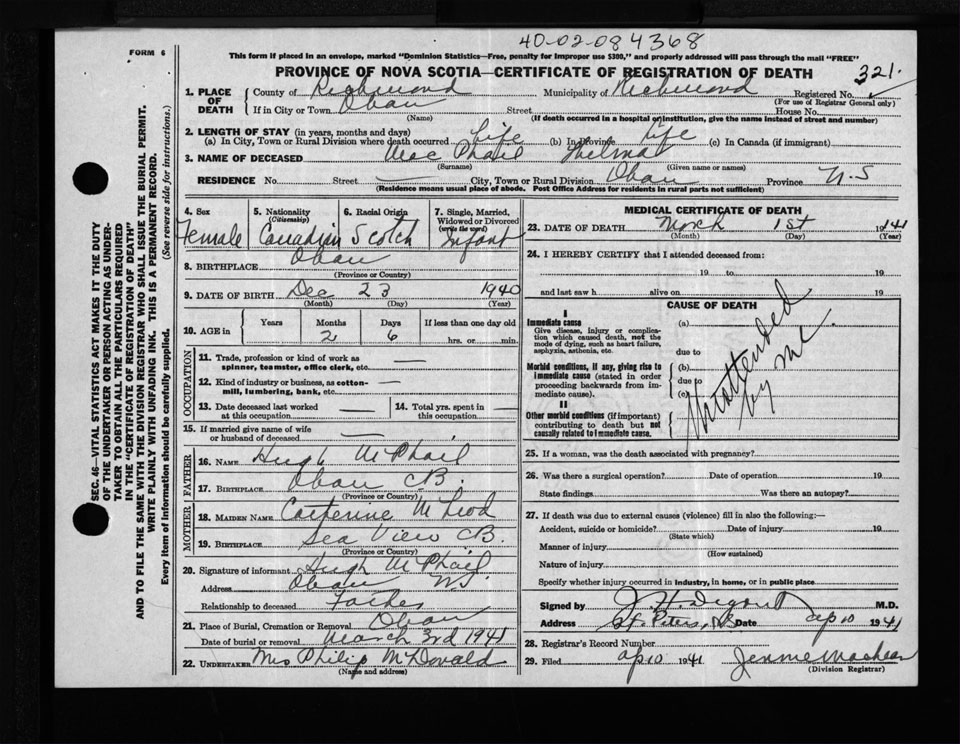 40-02-084368
FORM 6
This form if placed in an envelope, marked "Dominion Statistics—Free, penalty for improper use $300," and properly addressed will pass through the mail "FREE"
PROVINCE OF NOVA SCOTIA—CERTIFICATE OF REGISTRATION OF DEATH
321.
1. PLACE OF DEATH
County of Richmond Municipality of Richmond Registered No.
(For use of Registrar General only)
If in City or Town Oban Street House No.
(Name) (If death occurred in a hospital or institution, give the name instead of street and number)
2. LENGTH OF STAY (in years, months and days)
(a) In City, Town or Rural Division where death occurred Life (b) In Province Life (c) In Canada (if immigrant)
3. NAME OF DECEASED Mac Phail Thelma
(Surname) (Given name or names)
RESIDENCE No. Street — City, Town or Rural Division Oban Province N.S
(Residence means usual place of abode. Post Office Address for residents in rural parts not sufficient)
4. Sex 5. Nationality (Citizenship) 6. Racial Origin 7. Single, Married, Widowed or Divorced (write the word)
Female Canadian Scotch Infant
8. BIRTHPLACE Oban
(Province or Country)
9. DATE OF BIRTH Dec 23 1940
(Month) (Day) (Year)
10. AGE in Years Months Days If less than one day old
2 6 hrs. or min.
OCCUPATION
11. Trade, profession or kind of work as spinner, teamster, office clerk, etc. —
12. Kind of industry or business, as cotton-mill, lumbering, bank, etc. —
13. Date deceased last worked at this occupation — 14. Total yrs. spent in this occupation —
15. If married give name of wife or husband of deceased —
FATHER
16. NAME Hugh McPhail
17. BIRTHPLACE Oban CB.
(Province or Country)
MOTHER
18. MAIDEN NAME Catherine McLeod
19. BIRTHPLACE Sea View CB.
(Province or Country)
20. Signature of informant Hugh McPhail
Address Oban NS
Relationship to deceased Father
21. Place of Burial, Cremation or Removal Oban
Date of burial or removal March 3rd 1941
22. UNDERTAKER Mrs Philip McDonald
(Name and address)
MEDICAL CERTIFICATE OF DEATH
23. DATE OF DEATH March 1st 1941
(Month) (Day) (Year)
24. I HEREBY CERTIFY that I attended deceased from:
19 to 19
and last saw h alive on 19
CAUSE OF DEATH
I
Immediate cause
Give disease, injury or complication which caused death, not the mode of dying, such as heart failure, asphyxia, asthenia, etc.
(a)
due to
Morbid conditions, if any, giving rise to immediate cause (stated in order proceeding backwards from immediate cause).
(b)
due to
(c)
II
Other morbid conditions (if important) contributing to death but not causally related to immediate cause.
Not attended
by me
25. If a woman, was the death associated with pregnancy?
26. Was there a surgical operation? Date of operation 19
State findings Was there an autopsy?
27. If death was due to external causes (violence) fill in also the following:—
Accident, suicide or homicide? Date of injury 19
(State which)
Manner of injury
(How sustained)
Nature of injury
Specify whether injury occurred in industry, in home, or in public place
Signed by M.D.
Address St. Peters, NS Date Ap 10 1941
28. Registrar's Record Number
29. Filed Ap 10 1941
(Division Registrar)
SEC. 46—VITAL STATISTICS ACT MAKES IT THE DUTY
OF THE UNDERTAKER OR PERSON ACTING AS UNDER-
TAKER TO OBTAIN ALL THE PARTICULARS REQUIRED
IN THE "CERTIFICATE OF REGISTRATION OF DEATH"
AND TO FILE THE SAME WITH THE DIVISION REGISTRAR WHO SHALL ISSUE THE BURIAL PERMIT.
WRITE PLAINLY WITH UNFADING INK. THIS IS A PERMANENT RECORD.
Every item of Information should be carefully supplied. (See reverse side for instructions.)